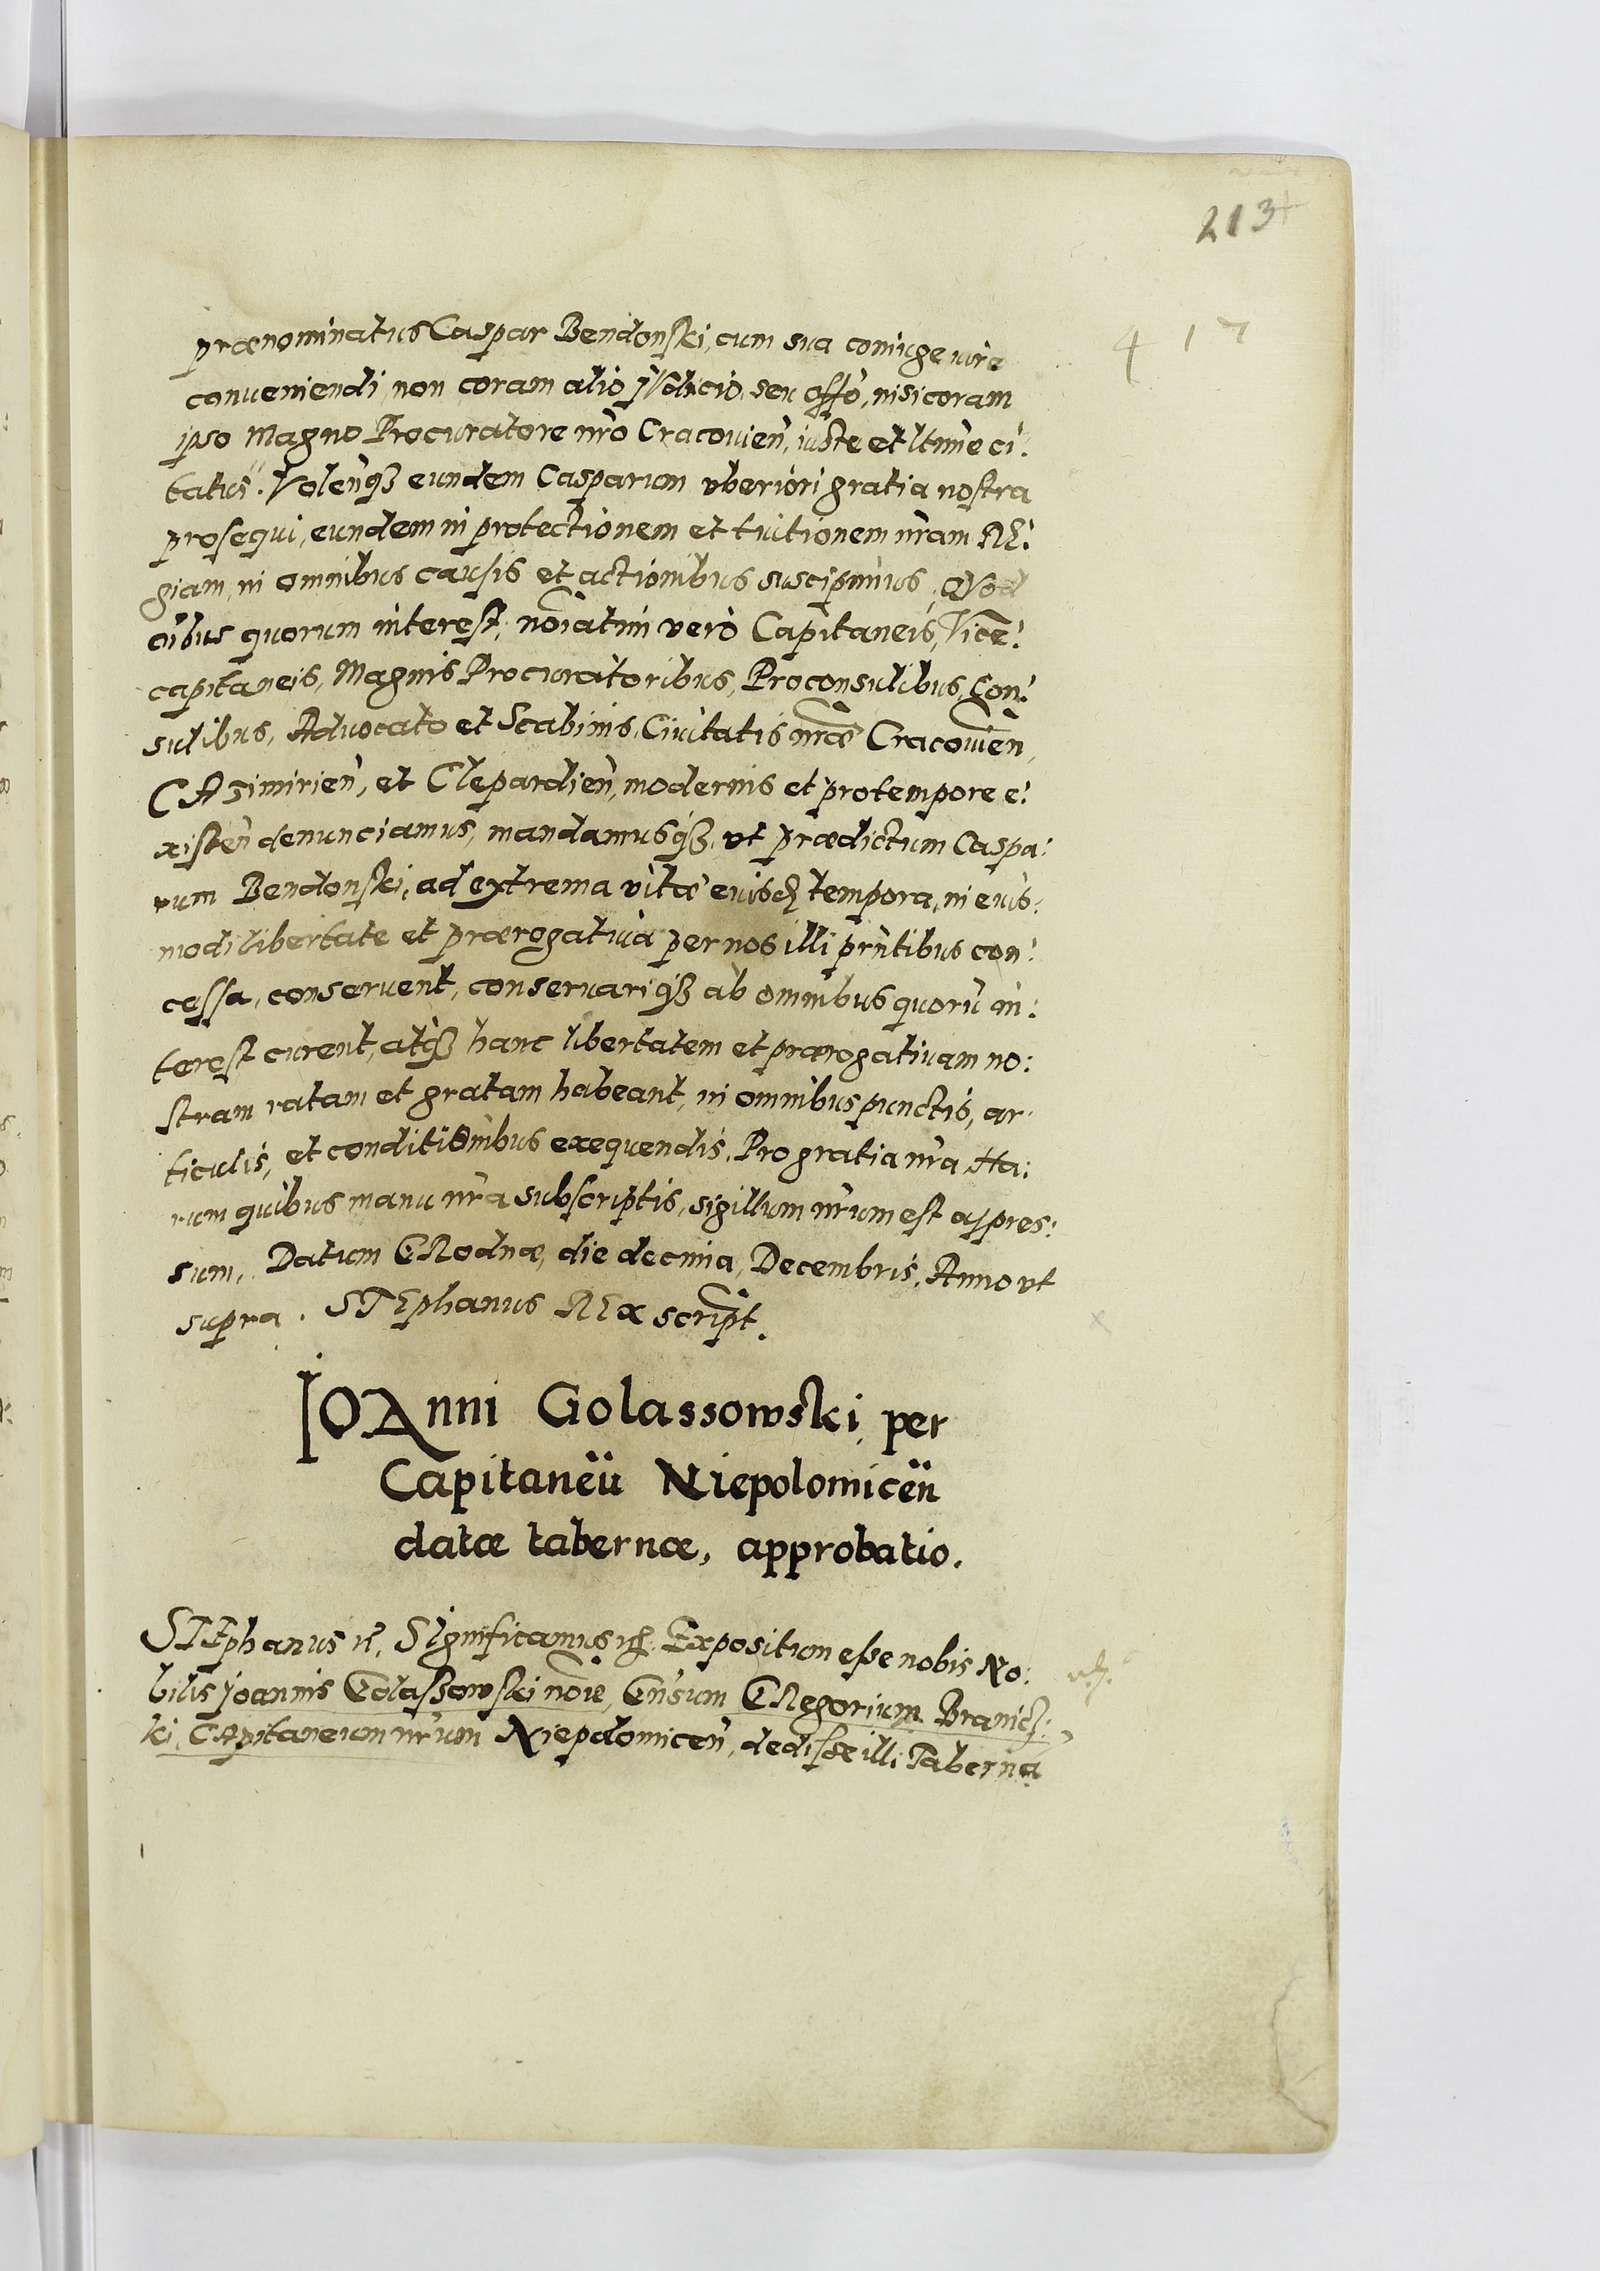 213
417
prænominatus Caspar Bendonski, cum sua coniuge iure
conueniendi, non coram alio Judicio, seu offo, nisi coram
ipso Magno Procuratore nro Cracouien, iuste et ltime ci:
tatus. Volenqȝ eundem Casparum vberiori gratia nostra
prosequi, eundem in protectionem et tuitionem nram RE:
giam, in omnibus causis et actionibus suscipimus. QVod
oibus quorum interest, noiatim vero Capitaneis, Vice:
capitaneis, Magnis Procuratoribus, Proconsulibus, Con:
sulibus, Aduocato et Scabinis, Ciuitatis nræ Cracouien,
CAsimirien, et Clepardien, modernis et pro tempore e:
xisten denunciamus, mandamusqȝ, vt prædictum Caspa:
rum Bendonski, ad extrema vitæ eiusd tempora, in eius:
modi libertate et prærogatiua per nos illi prntibus con:
cessa, conseruent, conseruariqȝ ab omnibus quoru in:
terest curent, atqȝ hanc libertatem et prærogatiuam no:
stram ratam et gratam habeant, in omnibus punctis, ar:
ticulis, et conditionibus exequendis. Pro gratia nra. Ha:
rum quibus manu nra subscriptis, sigillum nrum est appres:
sum. Datum GRodnæ, die decima, Decembris, Anno vt
supra. STEphanus REx script.
IOAnni Golassowski per
Capitaneu Niepolomicen
datæ tabernæ, approbatio.
STEphanus Significamus Expositum esse nobis No:
bilis Joannis Golassowski noie, Gnsum GRegorium Branicz:
ki, CApitaneum nrum Niepolomicen, dedisse illi Taberna